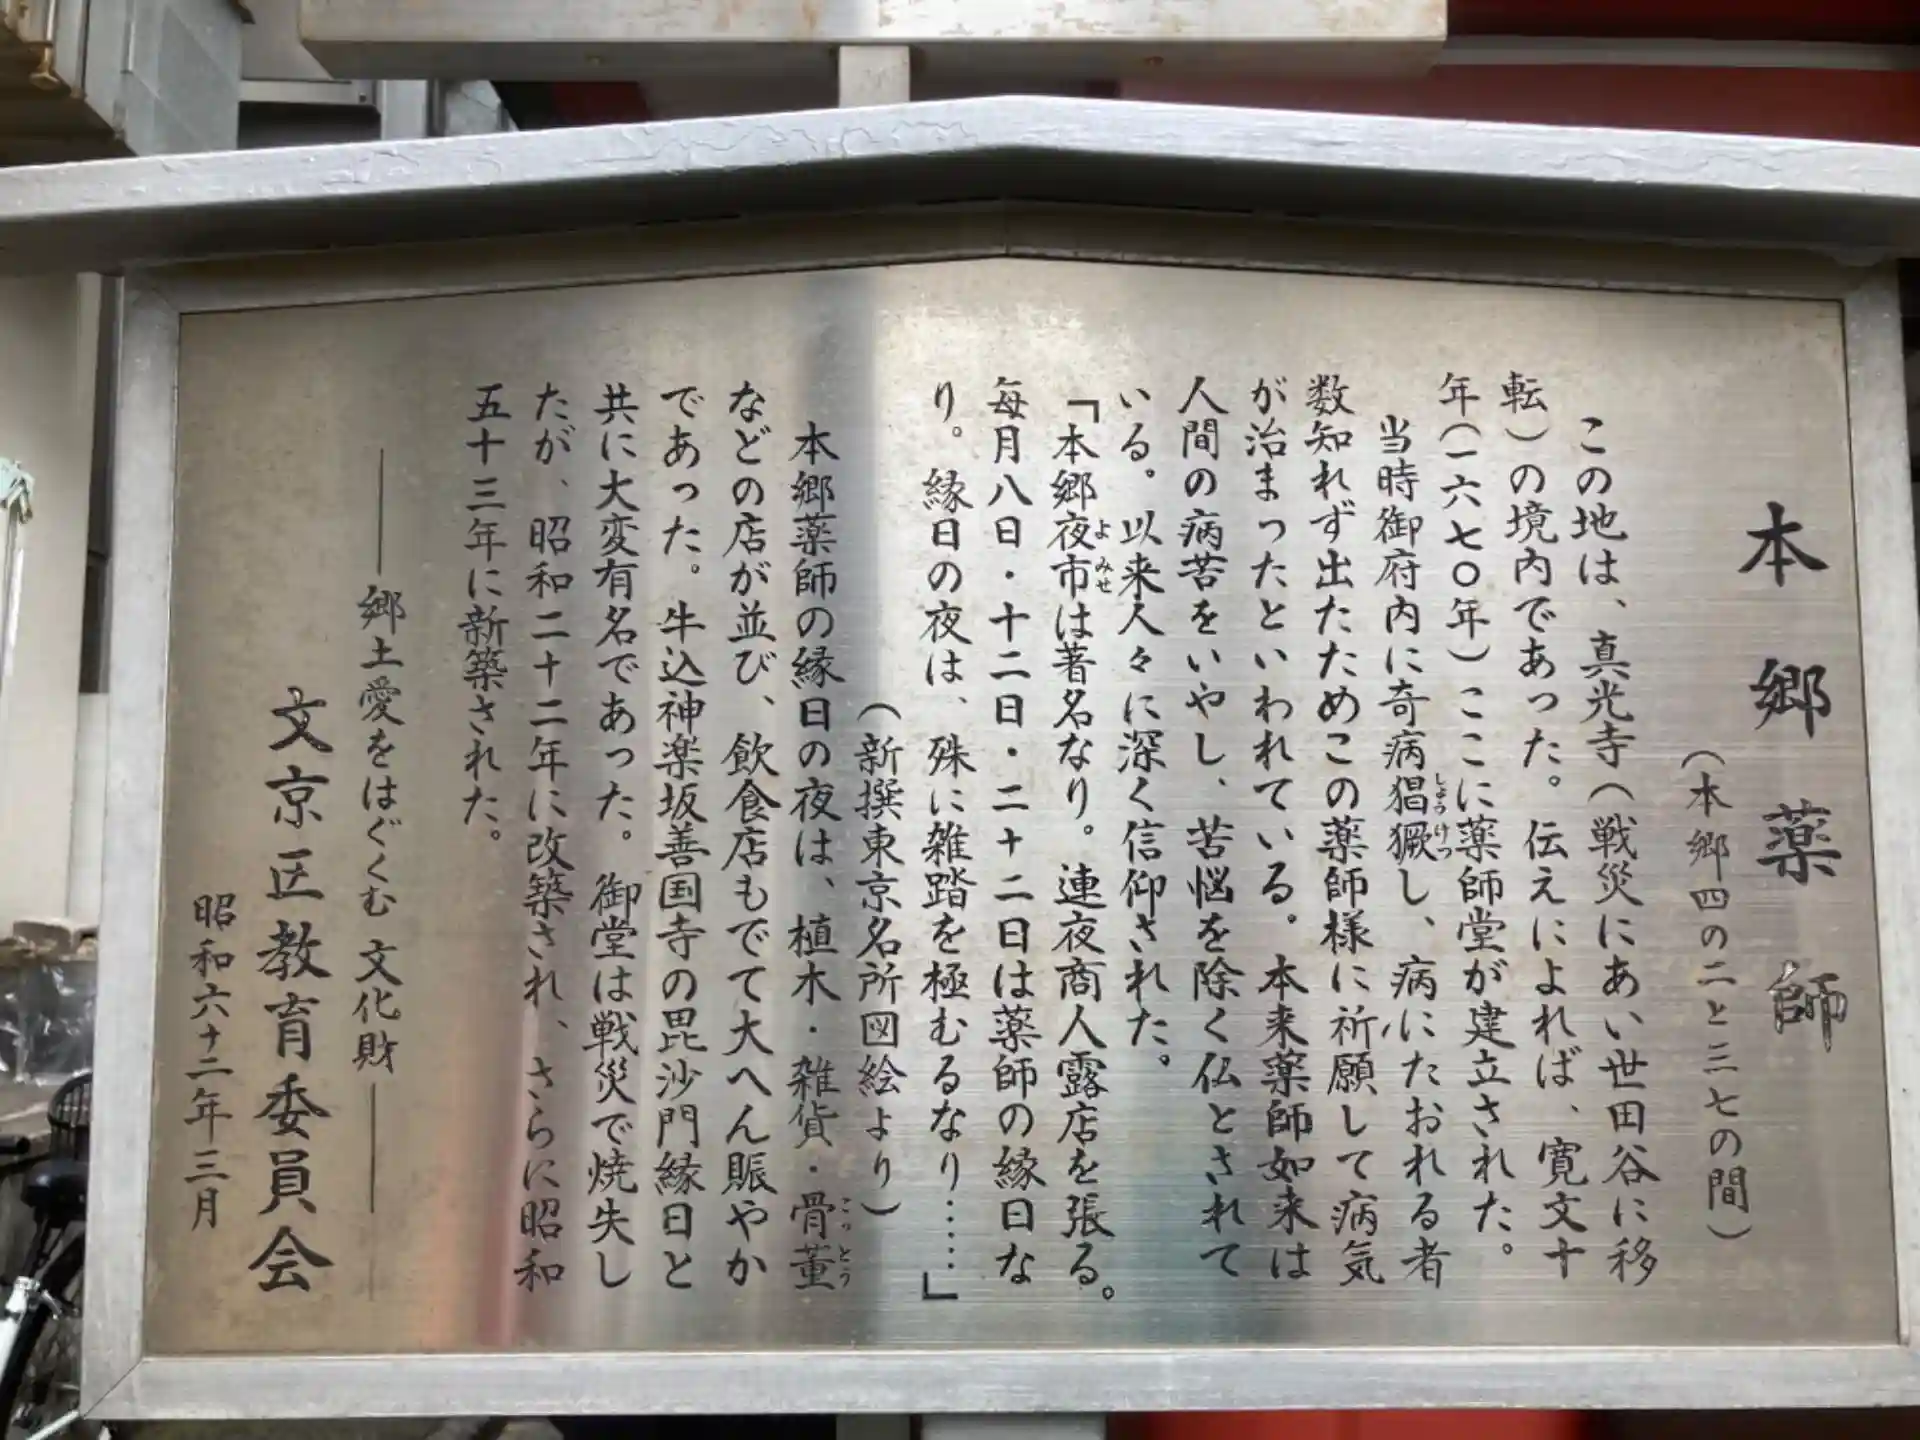 本郷薬師
(本郷四の二と三七の間)
この地は、真光寺(戦災にあい世田谷に移
転)の境内であった。伝えによれば、寛文十
年(一六七〇年)ここに薬師堂が建立された。
当時御府内に奇病猖獗し、病にたおれる者
しょうけつ
数知れず出たためこの薬師様に祈願して病気
が治まったといわれている。本来薬師如来は
人間の病苦をいやし、苦悩を除く仏とされて
いる。以来人々に深く信仰された。
「本郷夜市は著名なり。連夜商人露店を張る。
よみせ
毎月八日・十二日・二十二日は薬師の縁日な
り。縁日の夜は、殊に雑踏を極むるなり……」
(新撰東京名所図絵より)
本郷薬師の縁日の夜は、植木・雑貨・骨董
こっとう
などの店が並び、飲食店もでて大へん賑やか
であった。牛込神楽坂善国寺の毘沙門縁日と
共に大変有名であった。御堂は戦災で焼失し
たが、昭和二十二年に改築され、さらに昭和
五十三年に新築された。
――郷土愛をはぐくむ 文化財――
文京区教育委員会
昭和六十二年三月